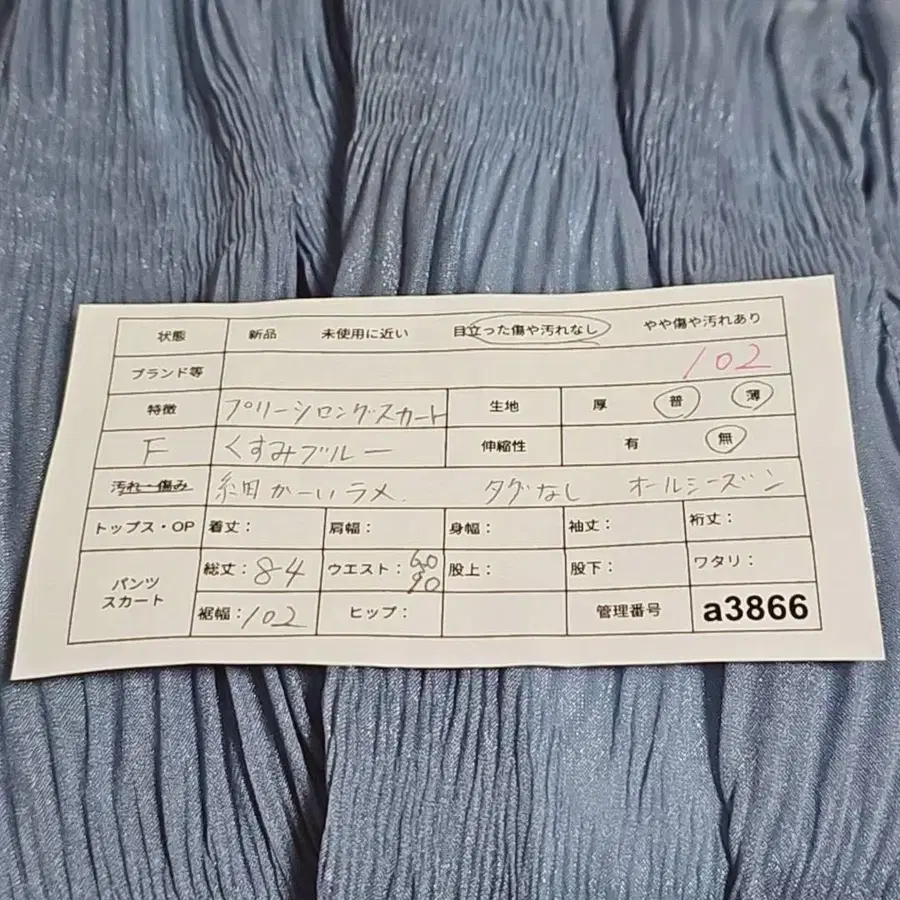 状態 新品 未使用に近い 目立った傷や汚れなし やや傷や汚れあり
ブランド等 102
特徴 プリーツロングスカート 生地 厚 普 薄
F くすみブルー 伸縮性 有 無
汚れ・傷み 細かーいラメ. タグなし オールシーズン
トップス・OP 着丈: 肩幅: 身幅: 袖丈: 裄丈:
パンツ スカート 総丈:84 ウエスト:60 90 股上: 股下: ワタリ:
裾幅:102 ヒップ: 管理番号 a3866